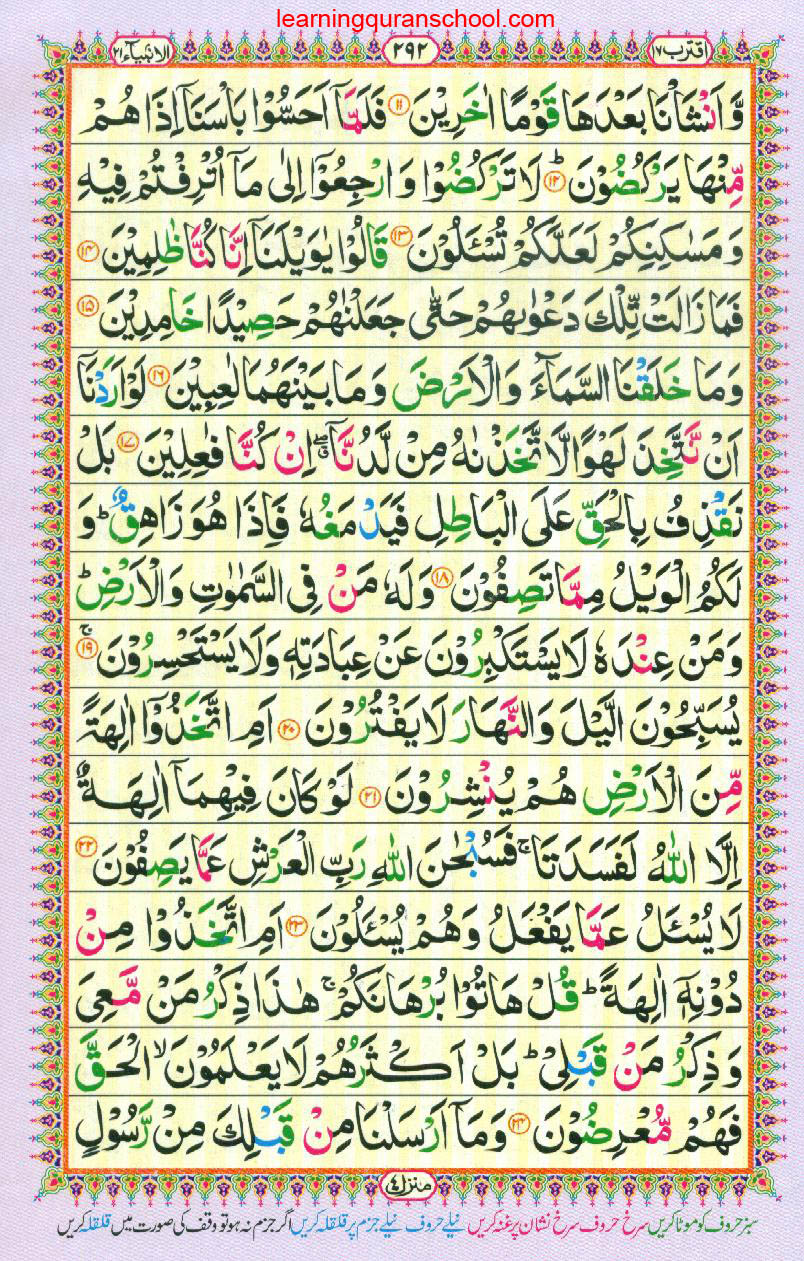 learningquranschool.com
اقترب ۱۷
۲۹۲
الانبیآء ۲۱
وَّ اَنْشَاْنَا بَعْدَهَا قَوْمًا اٰخَرِیْنَ ۱۱ فَلَمَّاۤ اَحَسُّوْا بَاْسَنَاۤ اِذَا هُمْ
مِّنْهَا یَرْكُضُوْنَ ؕ ۱۲ لَا تَرْكُضُوْا وَ ارْجِعُوْۤا اِلٰى مَاۤ اُتْرِفْتُمْ فِیْهِ
وَ مَسٰكِنِكُمْ لَعَلَّكُمْ تُسْـَٔلُوْنَ ۱۳ قَالُوْا یٰوَیْلَنَاۤ اِنَّا كُنَّا ظٰلِمِیْنَ ۱۴
فَمَا زَالَتْ تِّلْكَ دَعْوٰىهُمْ حَتّٰى جَعَلْنٰهُمْ حَصِیْدًا خَامِدِیْنَ ۱۵
وَ مَا خَلَقْنَا السَّمَآءَ وَ الْاَرْضَ وَ مَا بَیْنَهُمَا لٰعِبِیْنَ ۱۶ لَوْ اَرَدْنَاۤ
اَنْ نَّتَّخِذَ لَهْوًا لَّا تَّخَذْنٰهُ مِنْ لَّدُنَّاۤ ۖۗ اِنْ كُنَّا فٰعِلِیْنَ ۱۷ بَلْ
نَقْذِفُ بِالْحَقِّ عَلَى الْبَاطِلِ فَیَدْمَغُهٗ فَاِذَا هُوَ زَاهِقٌ ؕ وَ
لَكُمُ الْوَیْلُ مِمَّا تَصِفُوْنَ ۱۸ وَ لَهٗ مَنْ فِی السَّمٰوٰتِ وَ الْاَرْضِ ؕ
وَ مَنْ عِنْدَهٗ لَا یَسْتَكْبِرُوْنَ عَنْ عِبَادَتِهٖ وَ لَا یَسْتَحْسِرُوْنَ ۚ ۱۹
یُسَبِّحُوْنَ الَّیْلَ وَ النَّهَارَ لَا یَفْتُرُوْنَ ۲۰ اَمِ اتَّخَذُوْۤا اٰلِهَةً
مِّنَ الْاَرْضِ هُمْ یُنْشِرُوْنَ ۲۱ لَوْ كَانَ فِیْهِمَاۤ اٰلِهَةٌ
اِلَّا اللّٰهُ لَفَسَدَتَا ۚ فَسُبْحٰنَ اللّٰهِ رَبِّ الْعَرْشِ عَمَّا یَصِفُوْنَ ۲۲
لَا یُسْـَٔلُ عَمَّا یَفْعَلُ وَ هُمْ یُسْـَٔلُوْنَ ۲۳ اَمِ اتَّخَذُوْا مِنْ
دُوْنِهٖۤ اٰلِهَةً ؕ قُلْ هَاتُوْا بُرْهَانَكُمْ ۚ هٰذَا ذِكْرُ مَنْ مَّعِیَ
وَ ذِكْرُ مَنْ قَبْلِیْ ؕ بَلْ اَكْثَرُهُمْ لَا یَعْلَمُوْنَ ۙ الْحَقَّ
فَهُمْ مُّعْرِضُوْنَ ۲۴ وَ مَاۤ اَرْسَلْنَا مِنْ قَبْلِكَ مِنْ رَّسُوْلٍ
منزل ٤
سبز حروف کو موٹا کریں سرخ حروف سرخ نشان پر غنہ کریں نیلے حروف نیلے جزم پر قلقلہ کریں اگر جزم نہ ہو تو وقف کی صورت میں قلقلہ کریں